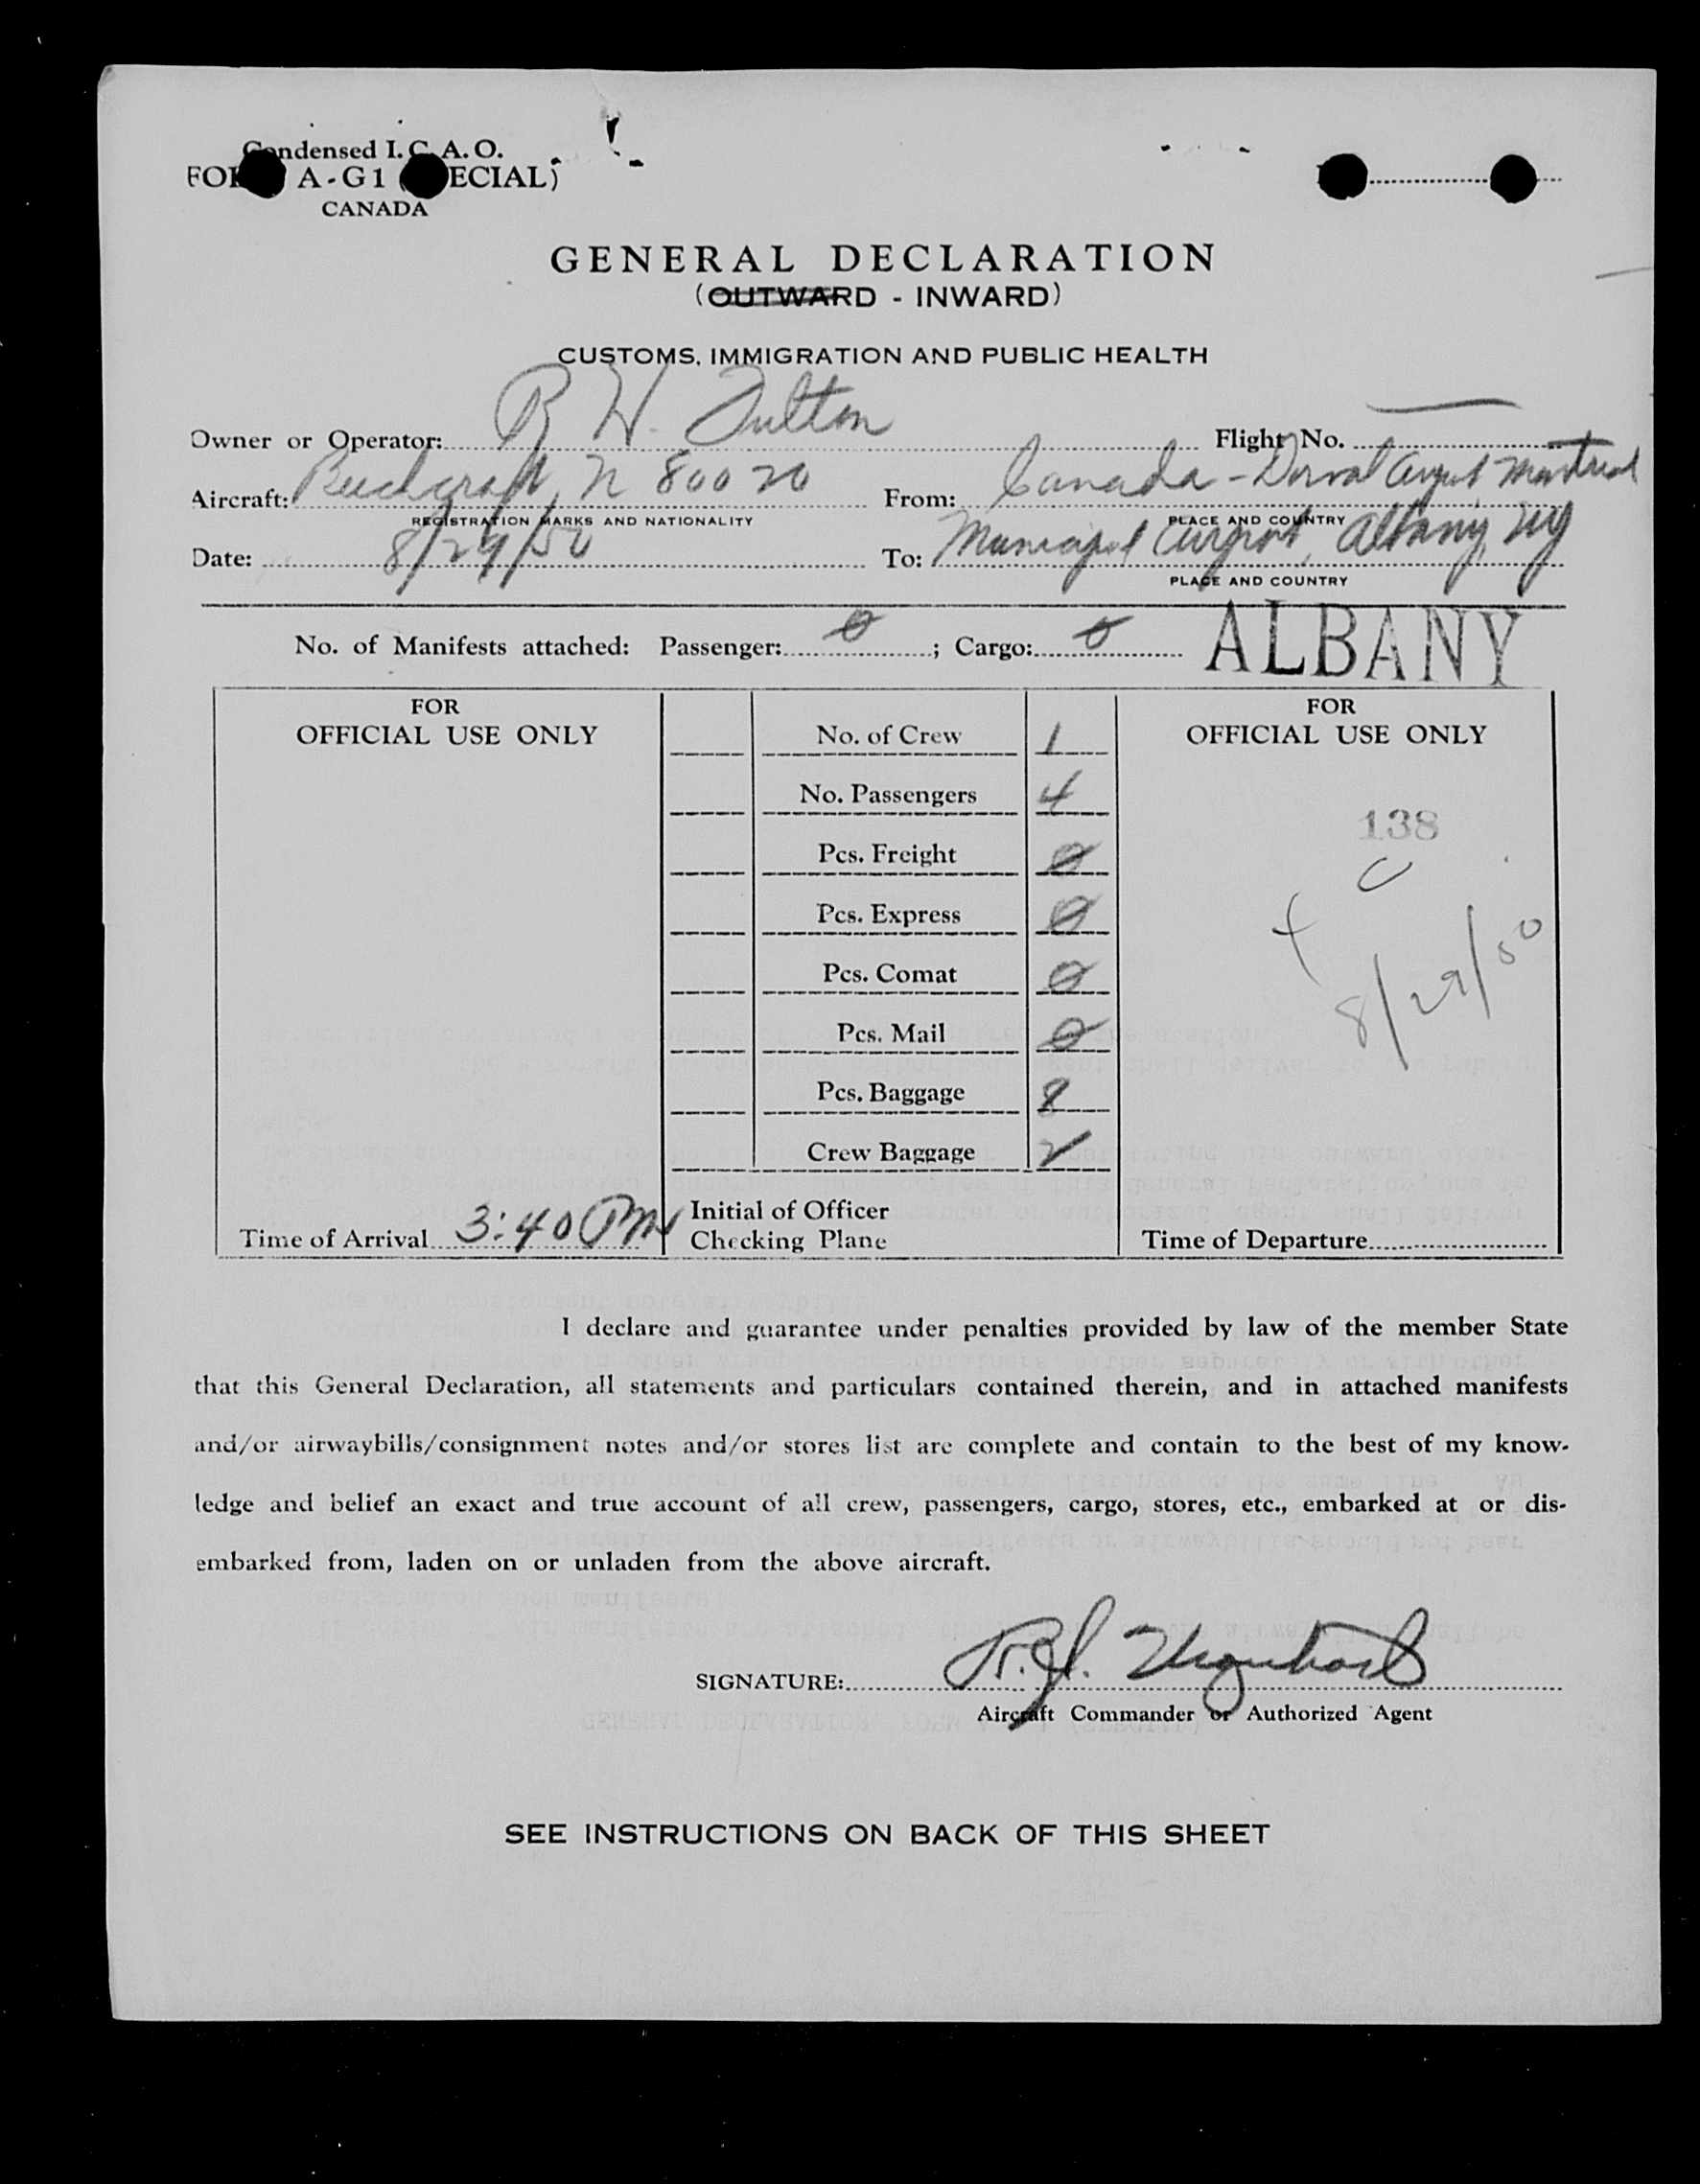 Condensed I. C. A. O.
FORM A-G1 (SPECIAL)
CANADA
GENERAL DECLARATION
(OUTWARD - INWARD)
CUSTOMS, IMMIGRATION AND PUBLIC HEALTH
Owner or Operator: R W. Fulton Flight No. —
Aircraft: Beechcraft, N 80020 From: Canada - Dorval Airport Montreal
REGISTRATION MARKS AND NATIONALITY PLACE AND COUNTRY
Date: 8/29/50 To: Municipal Airport, Albany, NY
PLACE AND COUNTRY
No. of Manifests attached: Passenger: 0 ; Cargo: 0 ALBANY
FOR
OFFICIAL USE ONLY
No. of Crew 1
No. Passengers 4
Pcs. Freight 0
Pcs. Express 0
Pcs. Comat 0
Pcs. Mail 0
Pcs. Baggage 8
Crew Baggage 2
FOR
OFFICIAL USE ONLY
138
8/29/50
Time of Arrival 3:40 PM
Initial of Officer
Checking Plane
Time of Departure
I declare and guarantee under penalties provided by law of the member State
that this General Declaration, all statements and particulars contained therein, and in attached manifests
and/or airwaybills/consignment notes and/or stores list are complete and contain to the best of my know-
ledge and belief an exact and true account of all crew, passengers, cargo, stores, etc., embarked at or dis-
embarked from, laden on or unladen from the above aircraft.
SIGNATURE: R. J. Urquhart
Aircraft Commander or Authorized Agent
SEE INSTRUCTIONS ON BACK OF THIS SHEET